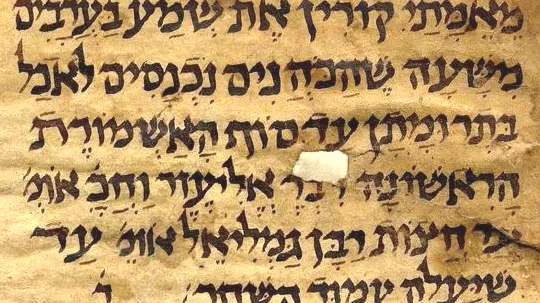 מאמתי קורין את שמע בערבים
משעה שהכהנים נכנסים לאכל
בתרומתן עד סוף האשמורת
הראשונה אליעזר וחכ' אומ'
עד חצות רבן גמליאל אומ' עד
שיעלה עמוד השחר